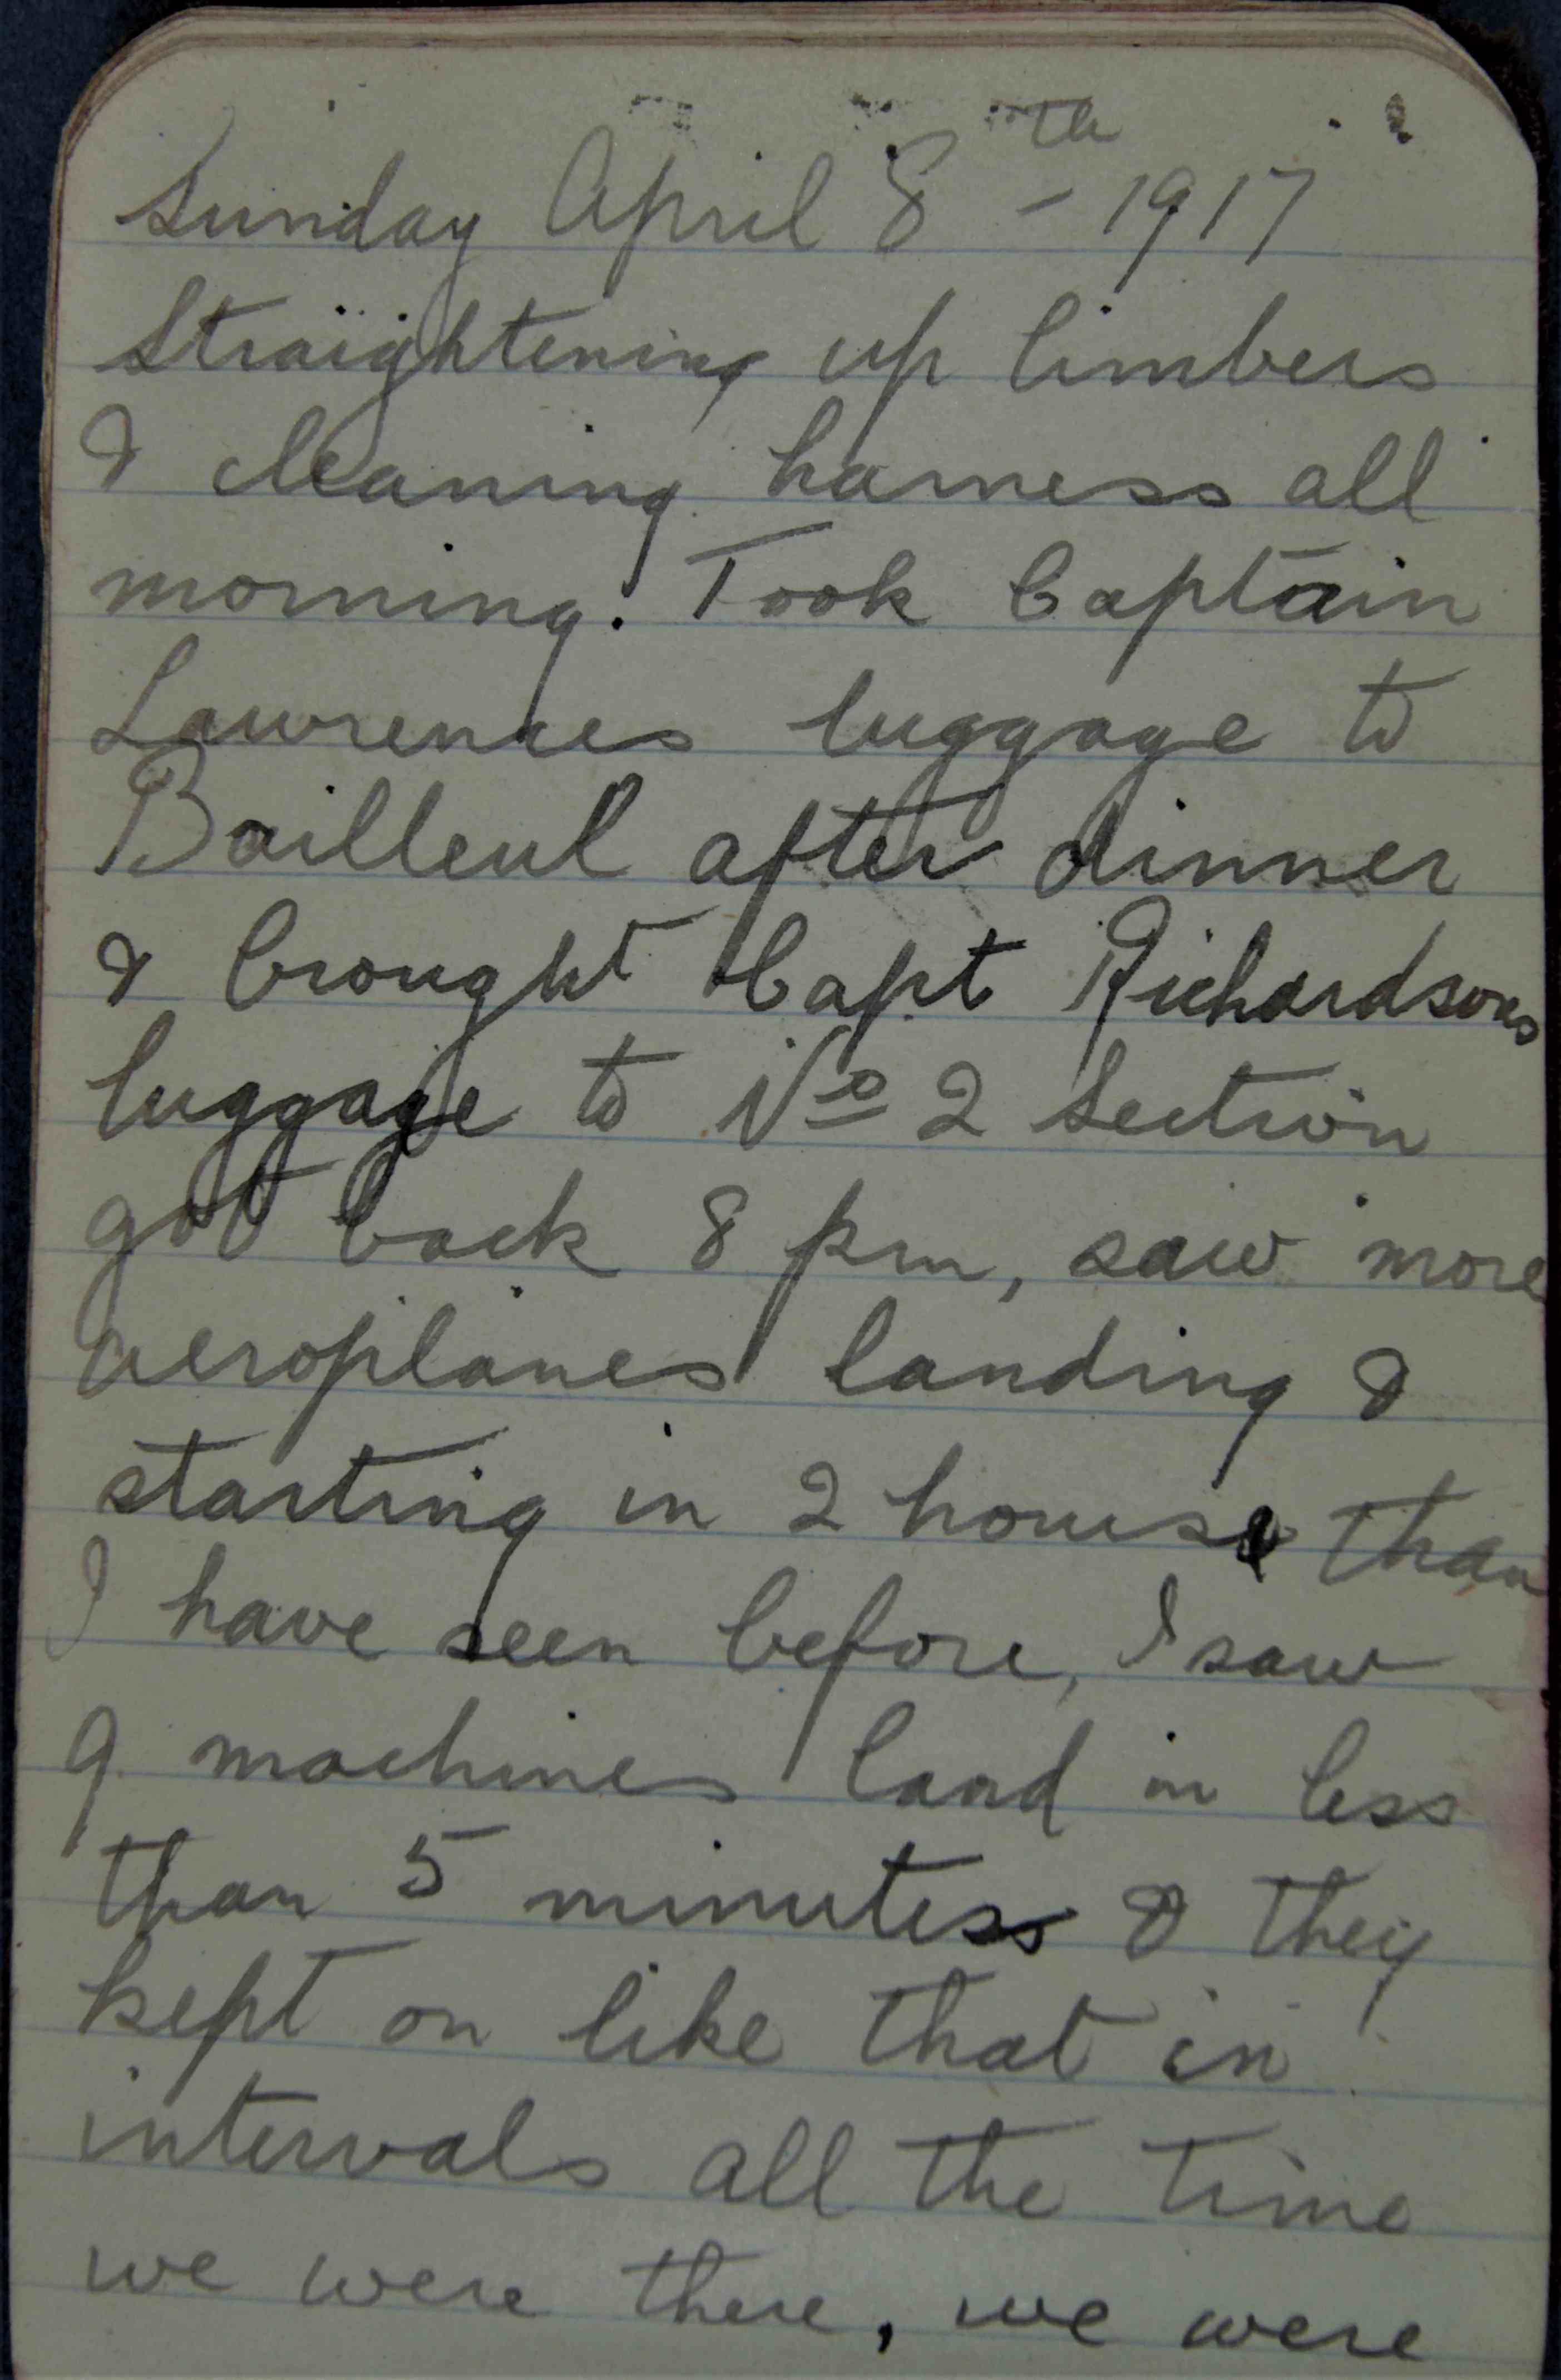 Sunday April 8th - 1917
Straightening up limbers
& cleaning harness all
morning. Took Captain
Lawrences luggage to
Bailleul after dinner
& brought Capt Richardsons
luggage to No 2 Section
got back 8 pm, saw more
aeroplanes landing &
starting in 2 hours than
I have seen before, I saw
9 machines land in less
than 5 minutes & they
kept on like that in
intervals all the time
we were there, we were